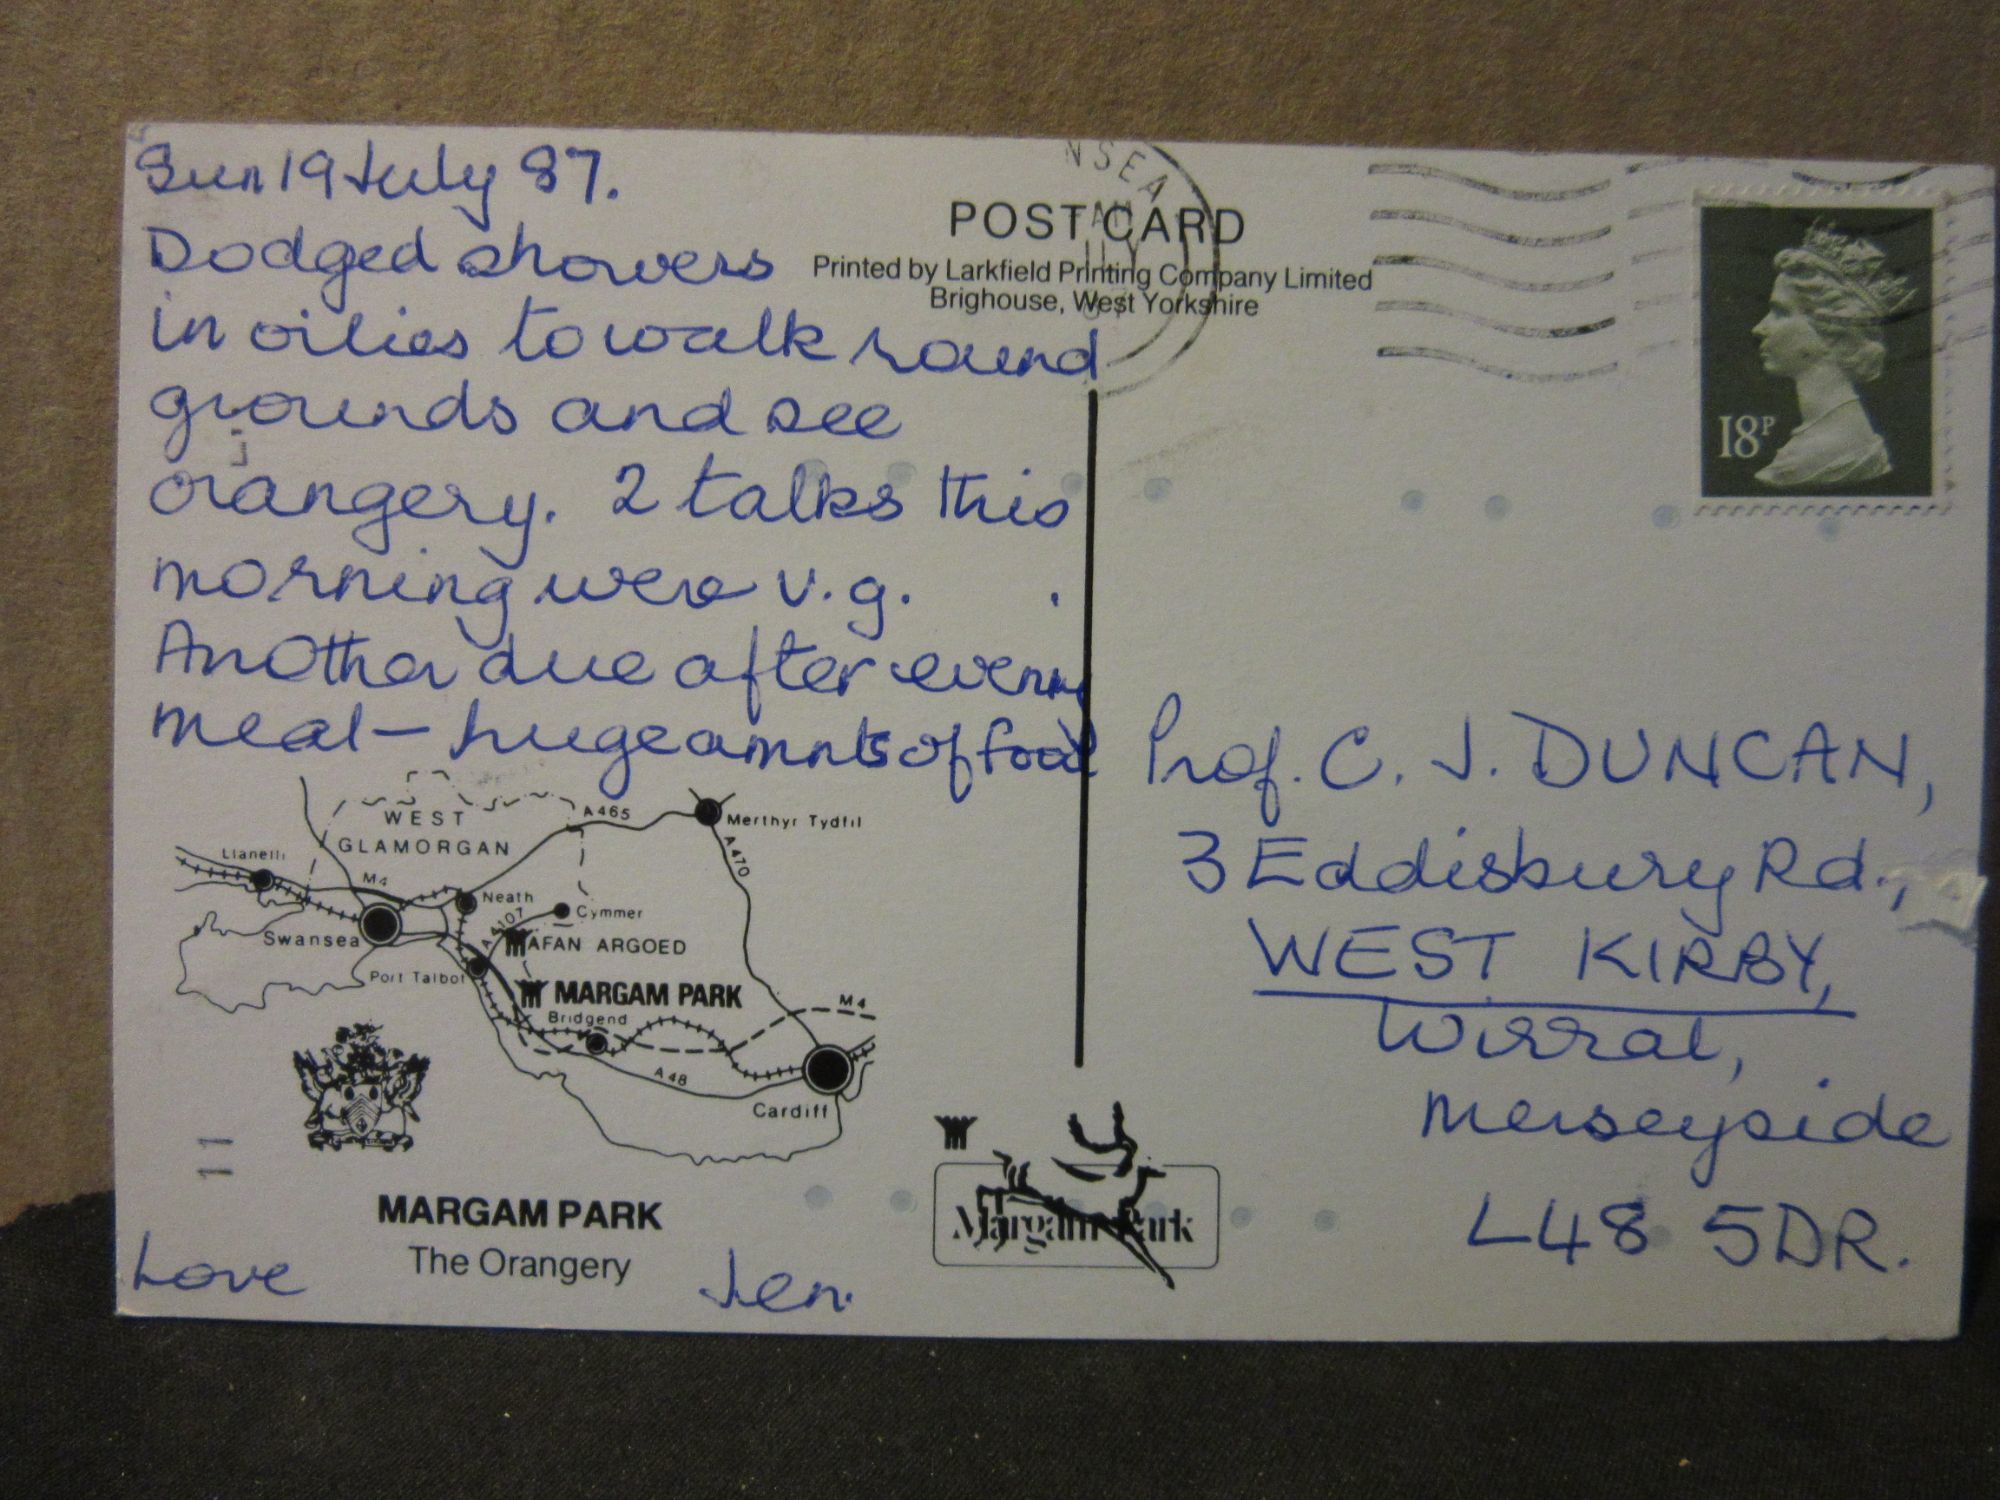 Sun 19 July 87.
Dodged showers
in oilies to walk round
grounds and see
orangery. 2 talks this
morning were v.g.
Another due after evening
meal – huge amnts of food
Love Jen.
NSEA
POST CARD
Printed by Larkfield Printing Company Limited
Brighouse, West Yorkshire
18P
Prof. C. J. DUNCAN,
3 Eddisbury Rd.,
WEST KIRBY,
Wirral,
Merseyside
L48 5DR.
WEST
GLAMORGAN
A465
Merthyr Tydfil
A470
Llanelli
M4
Neath
Swansea
A4107
Cymmer
AFAN ARGOED
Port Talbot
MARGAM PARK
Bridgend
M4
A48
Cardiff
11
MARGAM PARK
The Orangery
Margam Park